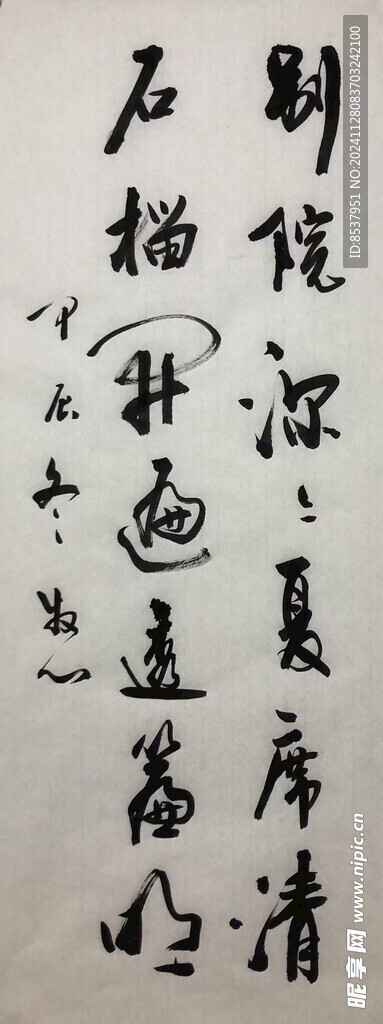 别院深〻夏席清
石榴開遍透簾明
甲辰冬 牧心
ID:8537951 NO:20241128083703242100
昵享网 www.nipic.cn